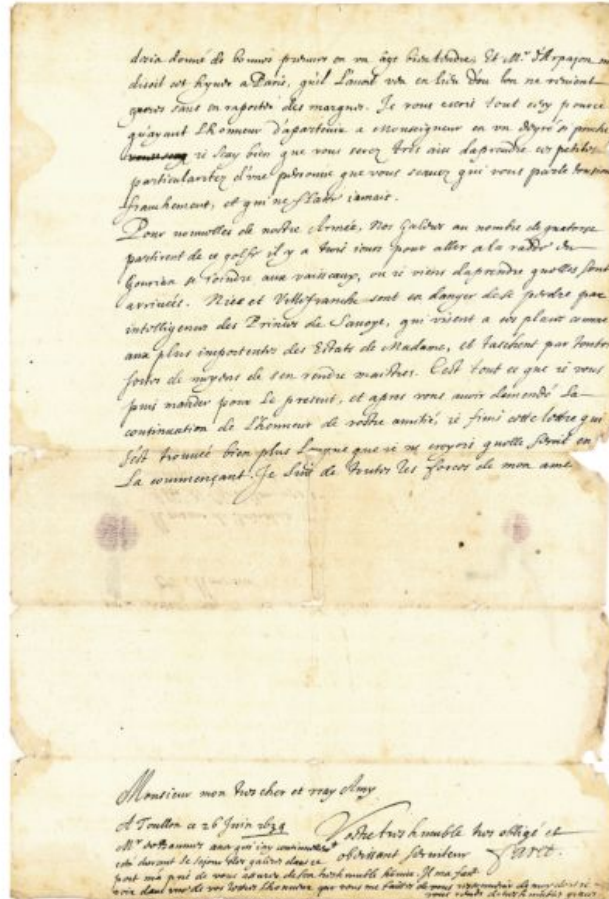 desia donné de bonnes preuves en vn âge bien tendre. Et Mr. d'Arpajon me
disoit cet hyuer a Paris, qu'il l'auoit veu en lieu d'ou lon ne reuient
gueres sans en raporter des marques. Je vous escris tout cecy pource
qu'ayant l'honneur d'apartenir a Monseigneur en vn degré si proche
ie scay bien que vous serez tres aise daprendre ces petites
particularitez d'vne personne que vous scauez qui vous parle tousiours
franchement, et qui ne flate iamais.
Pour nouuelles de nostre Armée, Nos Galeres au nombre de quatorze
partirent de ce golfe il y a trois iours pour aller a la radde du
Gourian se ioindre aux vaisseaux, ou ie viens daprendre quelles sont
arriuées. Nice et Villefranche sont en danger de se perdre par
intelligences des Princes de Sauoye, qui visent a ces places comme
aux plus importentes des Estats de Madame, et taschent par toutes
sortes de moyens de sen rendre maistres. C'est tout ce que ie vous
puis mander pour le present, et apres vous auoir demendé la
continuation de l'honneur de vostre amitié, ie finis cette lettre qui
s'est trouuée bien plus longue que ie ne croyois quelle seroit en
la commençant. Je suis de toutes les forces de mon ame
Monsieur mon tres cher et vray Amy
A Toullon ce 26 Juin 1639
Vostre tres humble tres obligé et
obeissant seruiteur
Faret.
Mr. qui icy
esté durant le sejour des galeres dans ce
port m'a prié de vous asurer de son tres humble seruice. Il ma fait
voir dans vne de vos lettres l'honneur que vous me faittes de vous ressouuenir de moy dont ie
vous rends de tres humbles graces.